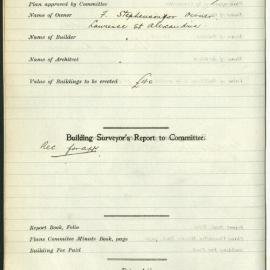 Plan approved by Committee
Name of Owner F. Stephenson for Owner
Lawrence St Alexandria
Name of Builder "
Name of Architect "
Value of Buildings to be erected £40
Building Surveyor's Report to Committee.
Rec for app
Report Book, Folio
Plans Committee Minute Book, page
Building Fee Paid